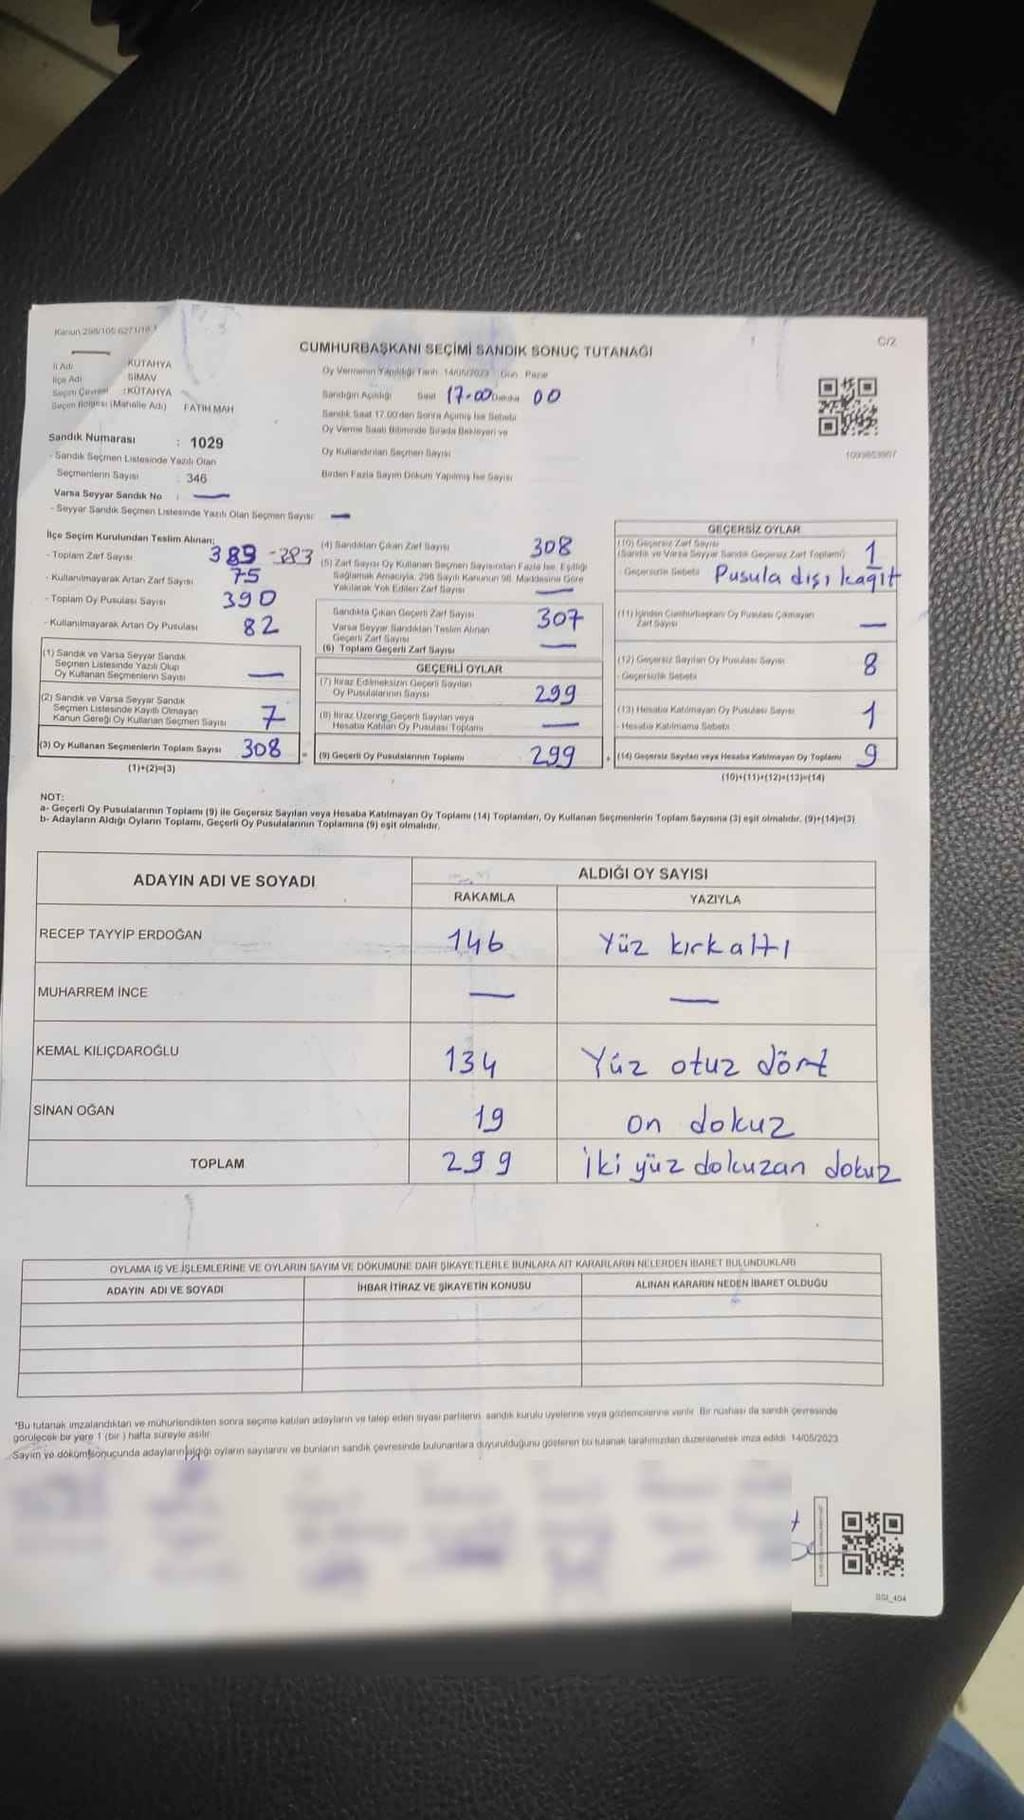 Kanun 298/105 6271/18
C/2
CUMHURBAŞKANI SEÇİMİ SANDIK SONUÇ TUTANAĞI
İl Adı KÜTAHYA
İlçe Adı SİMAV
Seçim Çevresi :KÜTAHYA
Seçim Bölgesi (Mahalle Adı) FATİH MAH
Sandık Numarası : 1029
- Sandık Seçmen Listesinde Yazılı Olan
Seçmenlerin Sayısı : 346
Varsa Seyyar Sandık No : —
- Seyyar Sandık Seçmen Listesinde Yazılı Olan Seçmen Sayısı —
Oy Vermenin Yapıldığı Tarih 14/05/2023 Gün Pazar
Sandığın Açıldığı Saat 17-00 Dakika 00
Sandık Saat 17.00'den Sonra Açılmış İse Sebebi
Oy Verme Saati Bitiminde Sırada Bekleyen ve
Oy Kullandırılan Seçmen Sayısı
Birden Fazla Sayım Döküm Yapılmış İse Sayısı
İlçe Seçim Kurulundan Teslim Alınan;
- Toplam Zarf Sayısı 389 -383
- Kullanılmayarak Artan Zarf Sayısı 75
- Toplam Oy Pusulası Sayısı 390
- Kullanılmayarak Artan Oy Pusulası 82
(1) Sandık ve Varsa Seyyar Sandık
Seçmen Listesinde Yazılı Olup
Oy Kullanan Seçmenlerin Sayısı —
(2) Sandık ve Varsa Seyyar Sandık
Seçmen Listesinde Kayıtlı Olmayan
Kanun Gereği Oy Kullanan Seçmen Sayısı 7
(3) Oy Kullanan Seçmenlerin Toplam Sayısı 308
(1)+(2)=(3)
(4) Sandıktan Çıkan Zarf Sayısı 308
(5) Zarf Sayısı Oy Kullanan Seçmen Sayısından Fazla İse, Eşitliği
Sağlamak Amacıyla, 298 Sayılı Kanunun 98. Maddesine Göre
Yakılarak Yok Edilen Zarf Sayısı —
Sandıkta Çıkan Geçerli Zarf Sayısı 307
Varsa Seyyar Sandıktan Teslim Alınan
Geçerli Zarf Sayısı —
(6) Toplam Geçerli Zarf Sayısı
GEÇERLİ OYLAR
(7) İtiraz Edilmeksizin Geçerli Sayılan
Oy Pusulalarının Sayısı 299
(8) İtiraz Üzerine Geçerli Sayılan veya
Hesaba Katılan Oy Pusulası Toplamı —
= (9) Geçerli Oy Pusulalarının Toplamı 299
GEÇERSİZ OYLAR
(10) Geçersiz Zarf Sayısı
(Sandık ve Varsa Seyyar Sandık Geçersiz Zarf Toplamı) 1
- Geçersizlik Sebebi Pusula dışı kağıt
(11) İçinden Cumhurbaşkanı Oy Pusulası Çıkmayan
Zarf Sayısı —
(12) Geçersiz Sayılan Oy Pusulası Sayısı 8
- Geçersizlik Sebebi
(13) Hesaba Katılmayan Oy Pusulası Sayısı 1
- Hesaba Katılmama Sebebi
+ (14) Geçersiz Sayılan veya Hesaba Katılmayan Oy Toplamı 9
(10)+(11)+(12)+(13)=(14)
NOT:
a- Geçerli Oy Pusulalarının Toplamı (9) ile Geçersiz Sayılan veya Hesaba Katılmayan Oy Toplamı (14) Toplamları, Oy Kullanan Seçmenlerin Toplam Sayısına (3) eşit olmalıdır. (9)+(14)=(3)
b- Adayların Aldığı Oyların Toplamı, Geçerli Oy Pusulalarının Toplamına (9) eşit olmalıdır.
ADAYIN ADI VE SOYADI
ALDIĞI OY SAYISI
RAKAMLA YAZIYLA
RECEP TAYYİP ERDOĞAN 146 Yüz kırkaltı
MUHARREM İNCE — —
KEMAL KILIÇDAROĞLU 134 Yüz otuz dört
SİNAN OĞAN 19 on dokuz
TOPLAM 299 iki yüz dokuzan dokuz
OYLAMA İŞ VE İŞLEMLERİNE VE OYLARIN SAYIM VE DÖKÜMÜNE DAİR ŞİKAYETLERLE BUNLARA AİT KARARLARIN NELERDEN İBARET BULUNDUKLARI
ADAYIN ADI VE SOYADI İHBAR İTİRAZ VE ŞİKAYETİN KONUSU ALINAN KARARIN NEDEN İBARET OLDUĞU
*Bu tutanak imzalandıktan ve mühürlendikten sonra seçime katılan adayların ve talep eden siyasi partilerin sandık kurulu üyelerine veya gözlemcilerine verilir. Bir nüshası da sandık çevresinde
görülecek bir yere 1 (bir ) hafta süreyle asılır.
Sayım ve döküm sonucunda adayların aldığı oyların sayılarını ve bunların sandık çevresinde bulunanlara duyurulduğunu gösteren bu tutanak tarafımızdan düzenlenerek imza edildi. 14/05/2023